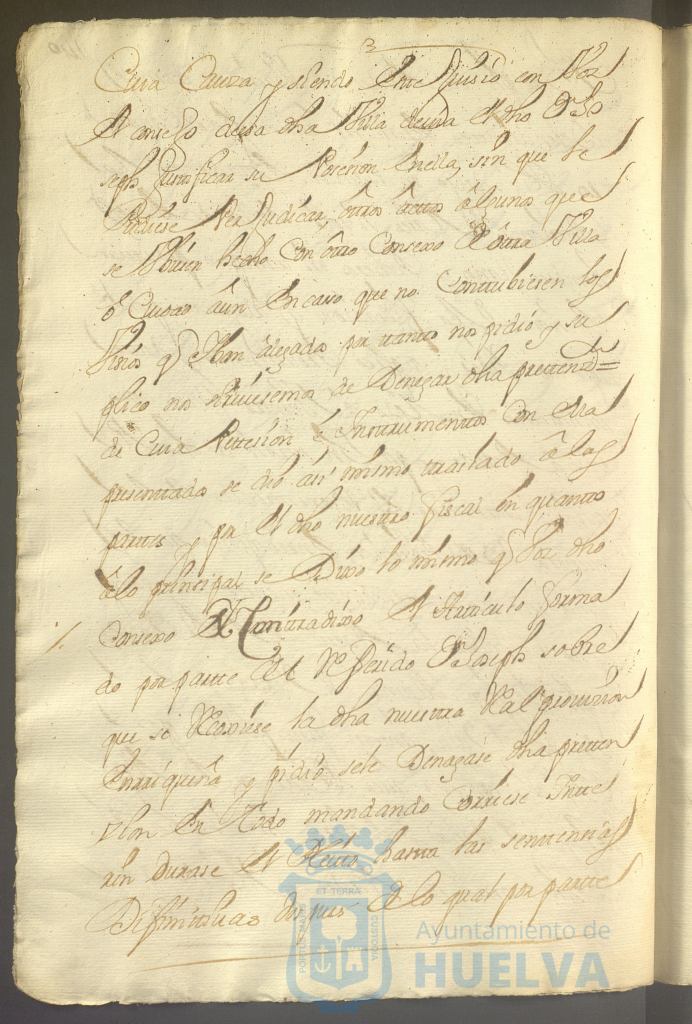 Cuia Cauza y siendo este Juisio en Voz
el consejo desa dha Villa devia el dho Dn Jo
seph Justificar su Posesion en ella, sin que le
Pudiese Perjudicar, otros actos algunos que
se Ubiesen hecho con otro Consexo de otra Villa
o Cuoto aun en caso que no Contubiesen los
Vicios q Iban alegados por tanto nos pidio y su
plico nos sirviesemos de Denegar dha pretenzn=
de Cuia Petision e Instrumentos con ella
presentados se dio asi mismo traslado a las
partes y por el dho nuestro fiscal en quanto
alo principal se Dixo lo mismo q Por dho
Consexo Contradixo el Articulo forma
do por parte del Referido Dn Joseph sobre
que se la dha nuestra Real provision
y pidio sele Denegase dha preten
zion en todo mandando Corriese Inte
rin durase el Pleito hasta las sentencias
Difinitivas despues de lo qual por parte
ET TERRA
PORTUS MARIS
CUSTODIA
Ayuntamiento de
HUELVA